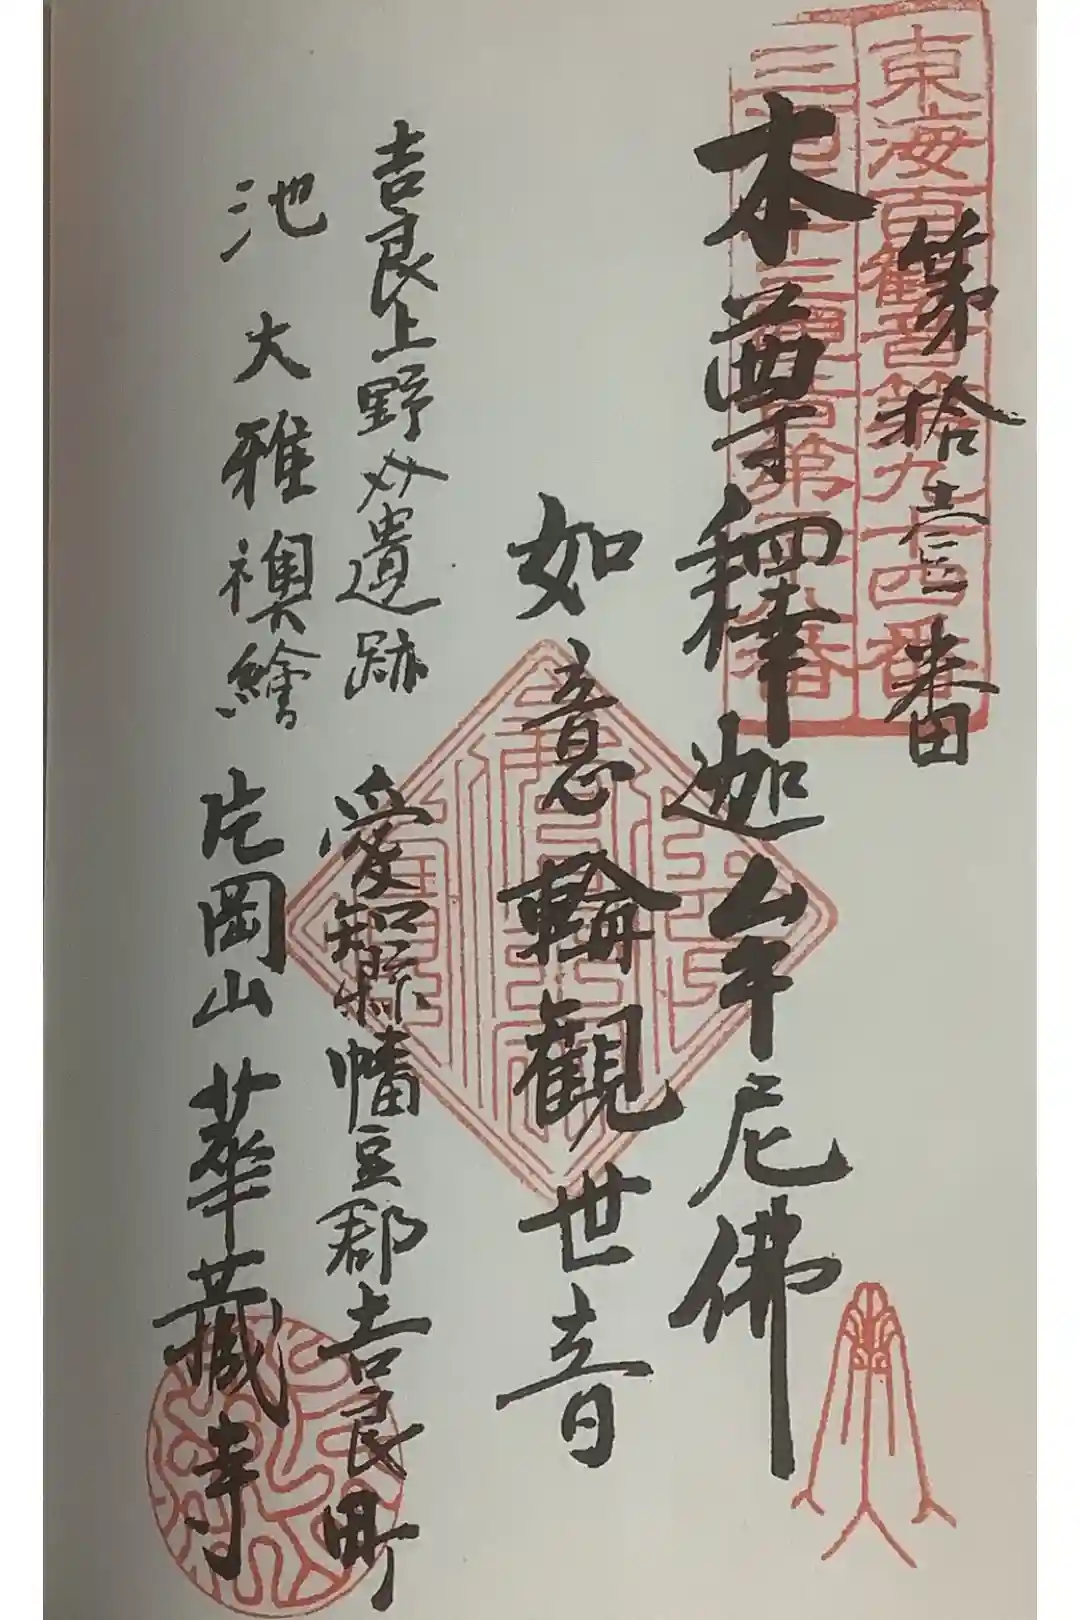 東海百觀音第九十四番
三河三十三觀音第
第拾壹番
本尊釋迦牟尼佛
如意輪觀世音
吉良上野介遺跡 愛知縣幡豆郡吉良町
池大雅襖繪 片岡山 華藏寺